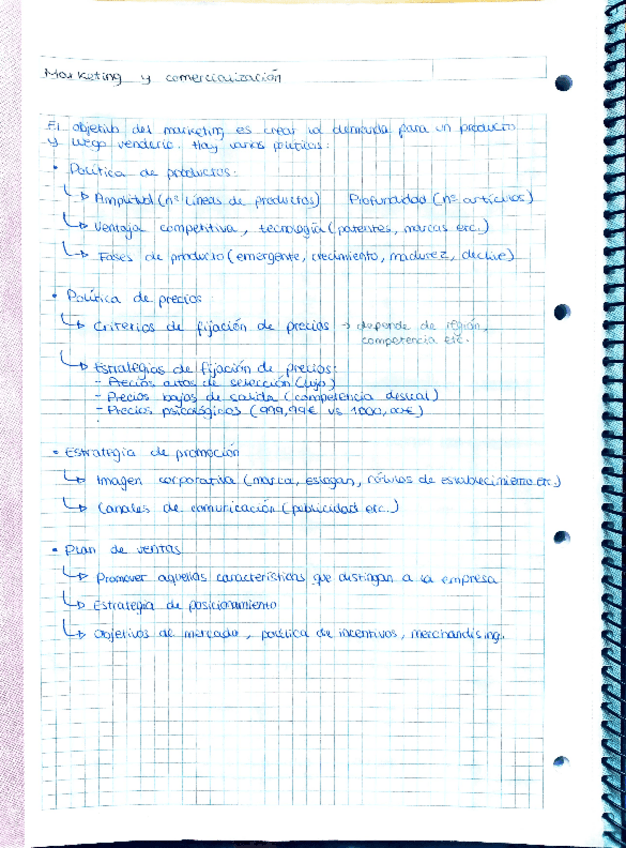 Marketing y comercialización
El objetivo del marketing es crear la demanda para un producto
y luego venderlo. Hay varias políticas:
• Política de productos:
↳ Amplitud (nº líneas de productos) Profundidad (nº artículos)
↳ Ventaja competitiva, tecnología (patentes, marcas etc.)
↳ Fases de producto (emergente, crecimiento, madurez, declive)
• Política de precios
↳ Criterios de fijación de precios → depende de región,
competencia etc.
↳ Estrategias de fijación de precios:
- Precios altos de selección (lujo)
- Precios bajos de salida (competencia desleal)
- Precios psicológicos (999,99€ vs 1000,00€)
• Estrategia de promoción
↳ Imagen corporativa (marca, eslogan, rótulos de establecimiento etc.)
↳ Canales de comunicación (publicidad etc.)
• Plan de ventas
↳ Promover aquellas características que distingan a la empresa
↳ Estrategia de posicionamiento
↳ Objetivos de mercado, política de incentivos, merchandising.